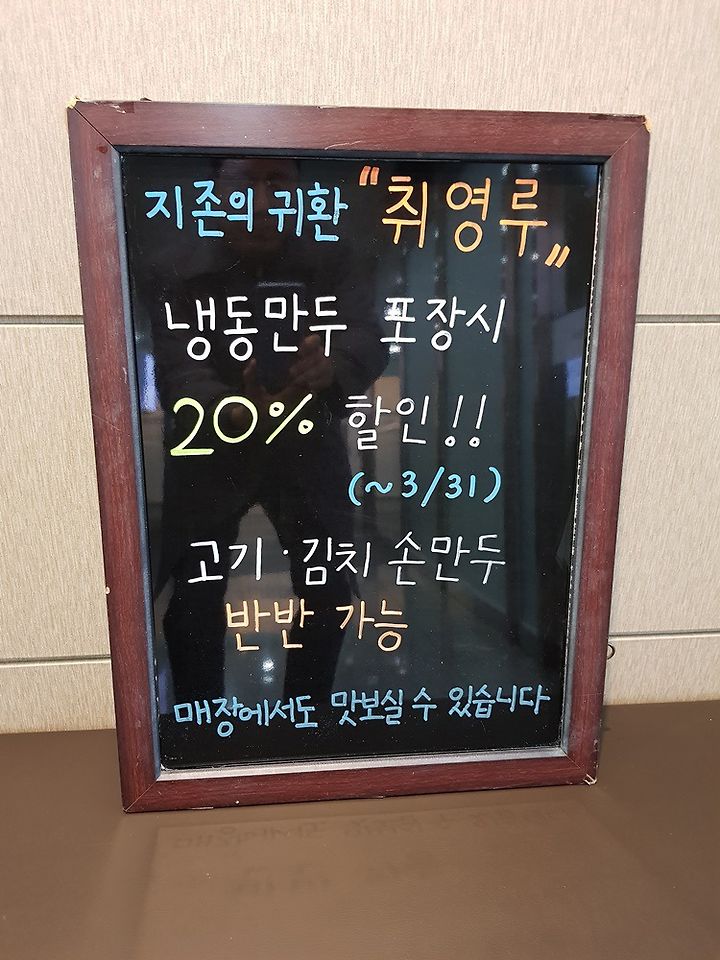 지존의 귀환 "취영루"
냉동만두 포장시
20% 할인!!
(~3/31)
고기·김치 손만두
반반 가능
매장에서도 맛보실 수 있습니다